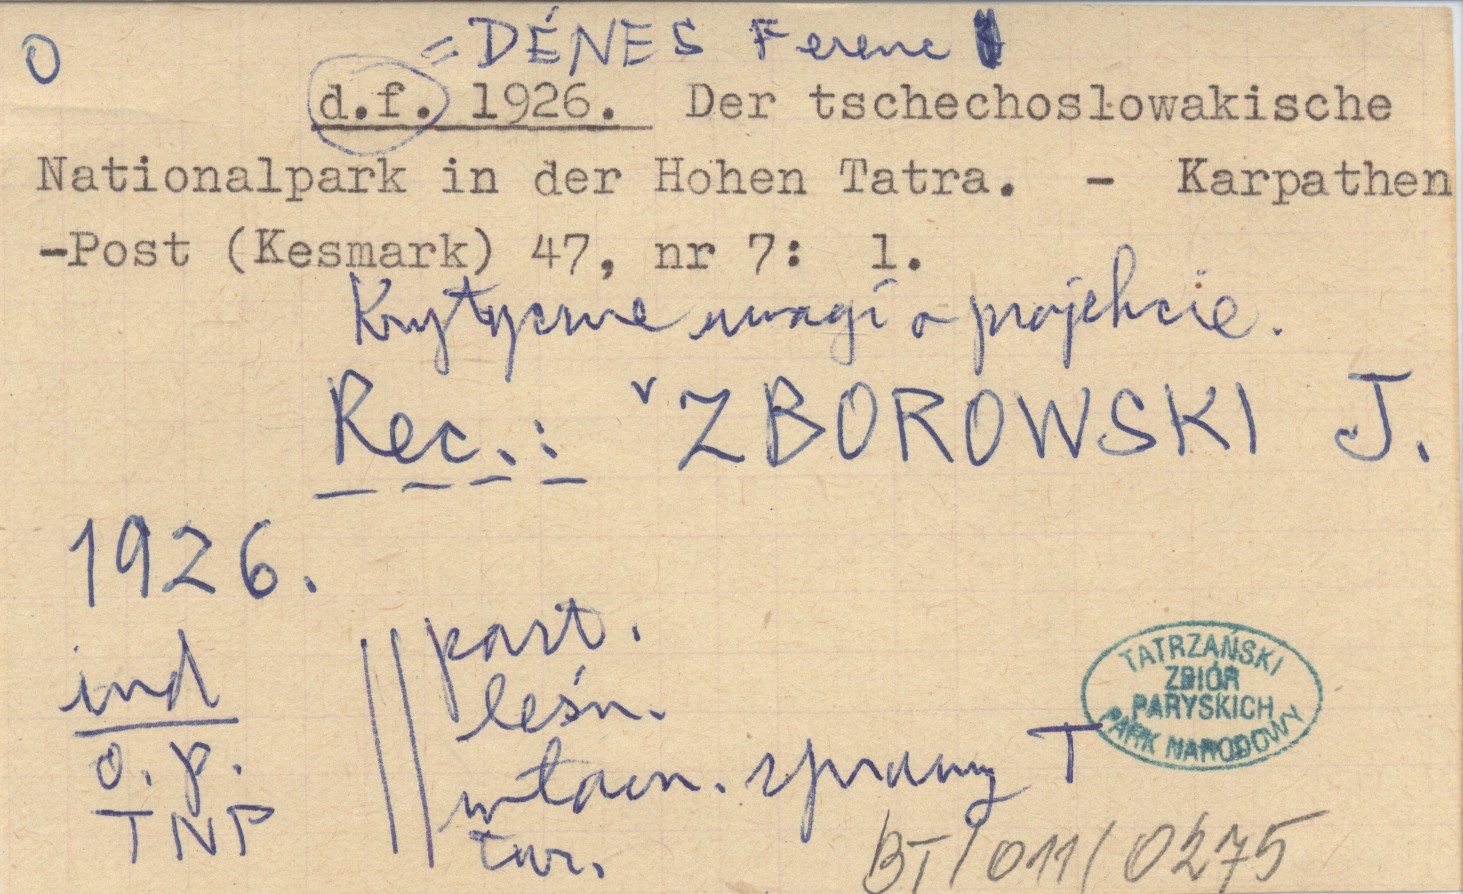 O
= DÉNES Ferenc
d.f. 1926. Der tschechoslowakische
Nationalpark in der Hohen Tatra. - Karpathen
-Post (Kesmark) 47, nr 7: 1.
Krytyczne uwagi o projekcie.
Rec.: ZBOROWSKI J.
1926.
ind
o.p.
TNP
past.
leśn.
własn. sprawy T
tur.
TATRZAŃSKI
ZBIÓR
PARYSKICH
PARK NARODOWY
BT/011/0275